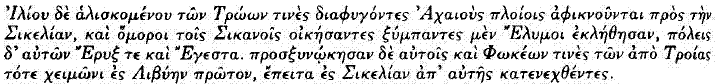 Ἰλίου δὲ ἁλισκομένου τῶν Τρώων τινὲς διαφυγόντες Ἀχαιοὺς πλοίοις ἀφικνοῦνται πρὸς τὴν
Σικελίαν, καὶ ὅμοροι τοῖς Σικανοῖς οἰκήσαντες ξύμπαντες μὲν Ἔλυμοι ἐκλήθησαν, πόλεις
δ' αὐτῶν Ἔρυξ τε καὶ Ἔγεστα. προσξυνῴκησαν δὲ αὐτοῖς καὶ Φωκέων τινὲς τῶν ἀπὸ Τροίας
τότε χειμῶνι ἐς Λιβύην πρῶτον, ἔπειτα ἐς Σικελίαν ἀπ' αὐτῆς κατενεχθέντες.